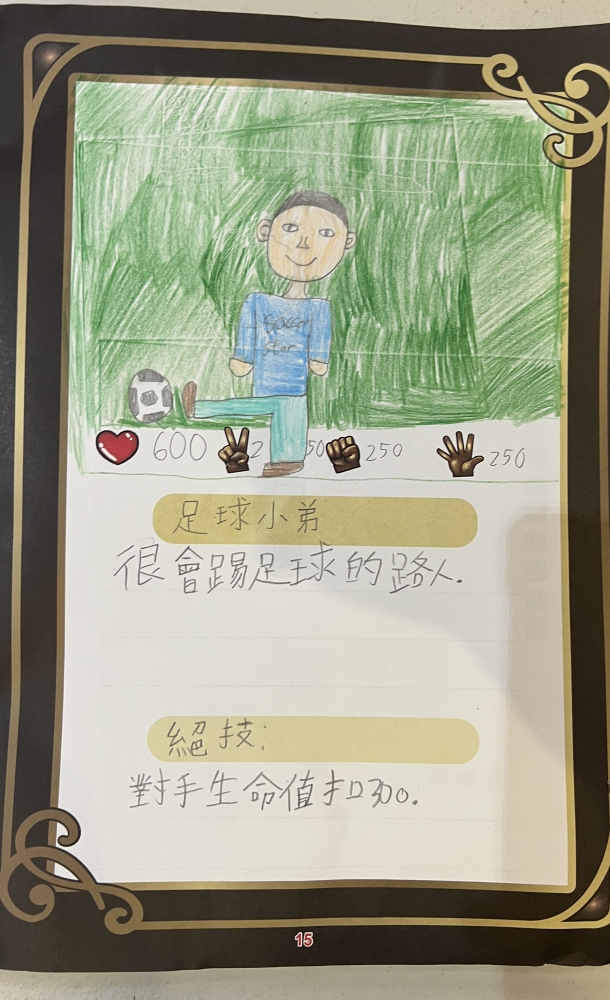 Soccer
star
600 250 250 250
足球小弟
很會踢足球的路人.
絕技:
對手生命值扣300.
15